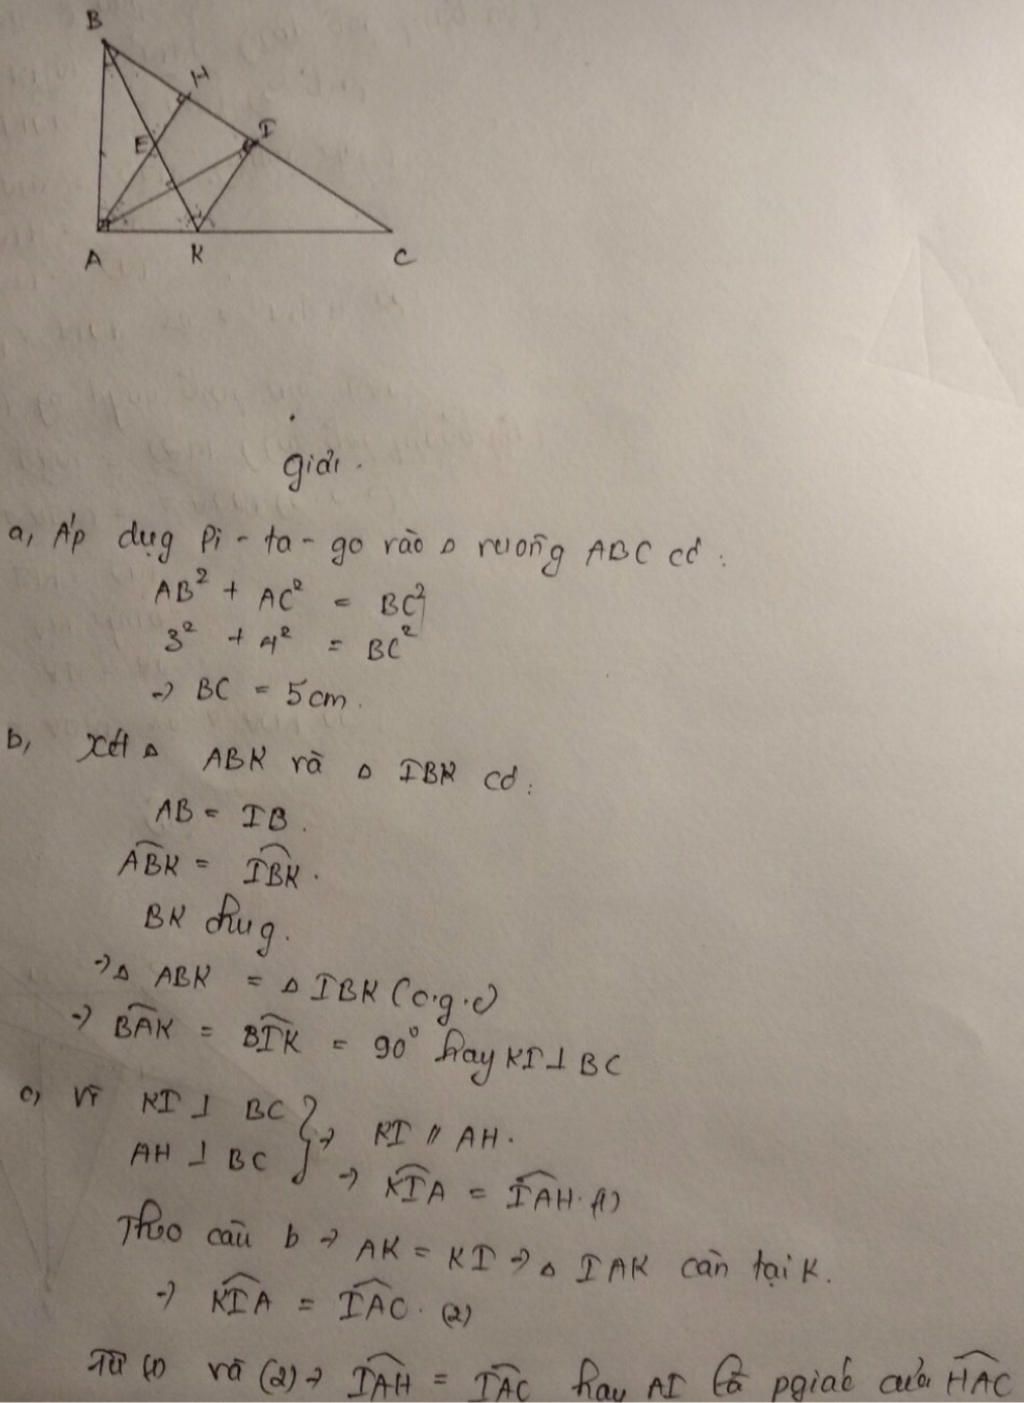 B
H
I
E
A
K
C
giải.
a, Áp dụg Pi-ta-go vào Δ vuôg ABC có:
AB² + AC² = BC²
3² + 4² = BC²
→ BC = 5cm.
b, Xét Δ ABK và Δ IBK có:
AB = IB.
ABK̂ = IBK̂.
BK chug.
→ Δ ABK = Δ IBK (c.g.c)
→ BAK̂ = BIK̂ = 90° hay KI ⊥ BC
c, Vì KI ⊥ BC } → KI // AH.
AH ⊥ BC
→ KIÂ = IAĤ. (1)
Theo câu b → AK = KI → Δ IAK cân tại K.
→ KIÂ = IAĈ. (2)
Từ (1) và (2) → IAĤ = IAĈ hay AI là pgiác của HAĈ